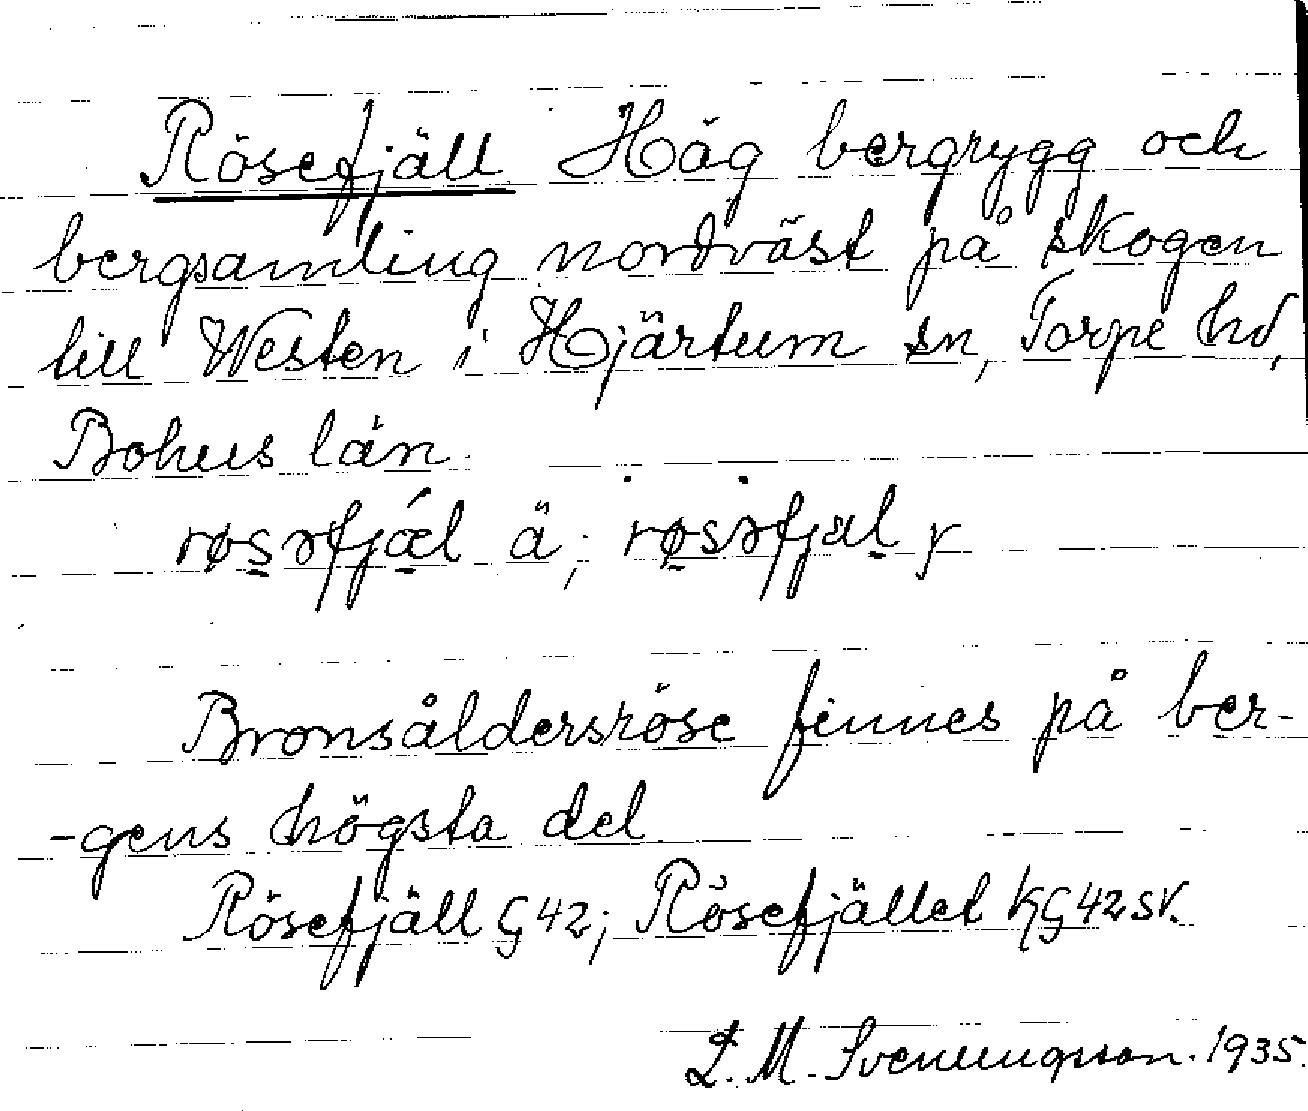 Rösefjäll Hög bergrygg och
bergsamling nordväst på skogen
till Westen i Hjärtum sn, Torpe hd,
Bohus län.
røsəfjǽl ä; røsəfjæl y
Bronsåldersröse finnes på ber-
-gens högsta del
Rösefjäll G42; Rösefjället KG42SV.
L. M. Svenungsson. 1935.